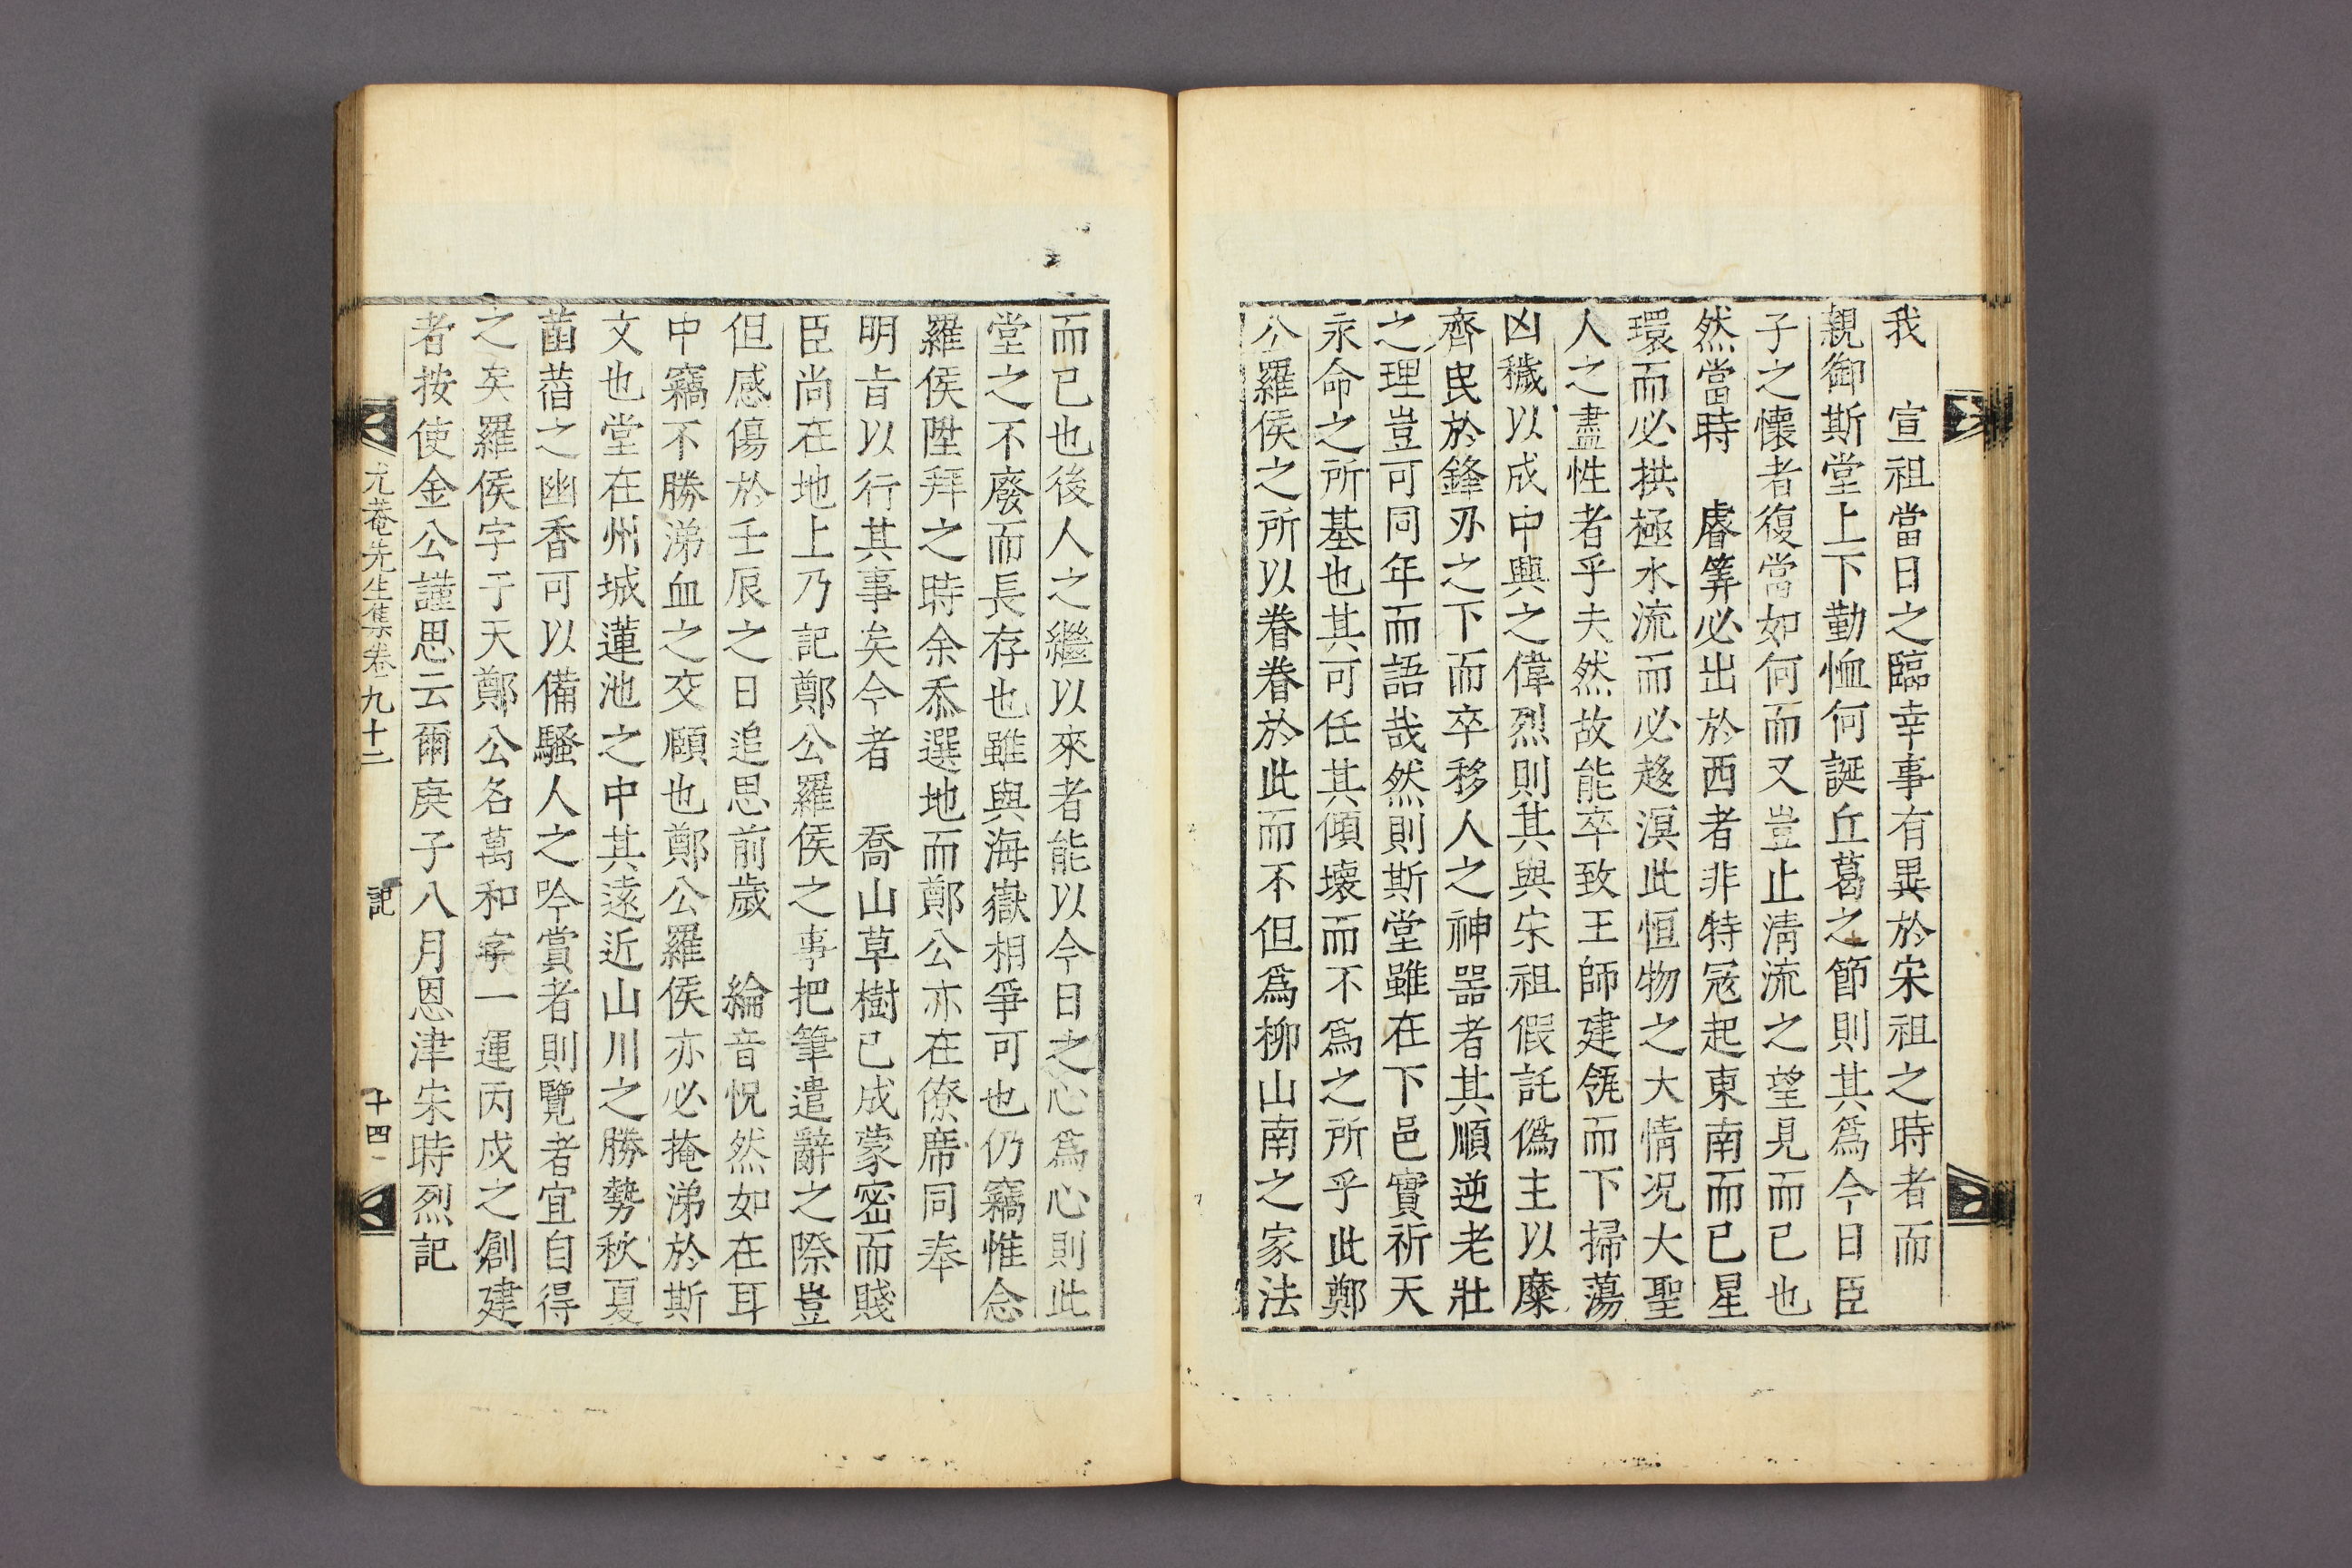 我　宣祖當日之臨幸事有異於宋祖之時者而
親御斯堂上下勤恤何誕丘葛之節則其爲今日臣
子之懷者復當如何而又豈止淸流之望見而已也
然當時　睿筭必出於西者非特冦起東南而已星
環而必拱極水流而必趍溟此恒物之大情況大聖
人之盡性者乎夫然故能卒致王師建瓴而下掃蕩
凶穢以成中興之偉烈則其與宋祖假託僞主以糜
齊民於鋒刃之下而卒移人之神噐者其順逆老壯
之理豈可同年而語哉然則斯堂雖在下邑實祈天
永命之所基也其可任其傾壞而不爲之所乎此鄭
公羅侯之所以眷眷於此而不但爲柳山南之家法
而已也後人之繼以來者能以今日之心爲心則此
堂之不廢而長存也雖與海嶽相爭可也仍竊惟念
羅侯陞拜之時余忝選地而鄭公亦在僚席同奉
明旨以行其事矣今者　喬山草樹已成蒙密而賤
臣尚在地上乃記鄭公羅侯之事把筆遣辭之際豈
但感傷於壬辰之日追思前歲　綸音怳然如在耳
中竊不勝涕血之交頤也鄭公羅侯亦必掩涕於斯
文也堂在州城蓮池之中其遠近山川之勝勢秋夏
菡萏之幽香可以備騷人之吟賞者則覽者宜自得
之矣羅侯字于天鄭公名萬和字一運丙戌之創建
者按使金公謹思云爾庚子八月恩津宋時烈記
尤菴先生集卷九十二　記　十四